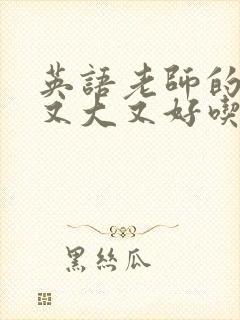 英語老師的
又大又好喫
黑絲瓜